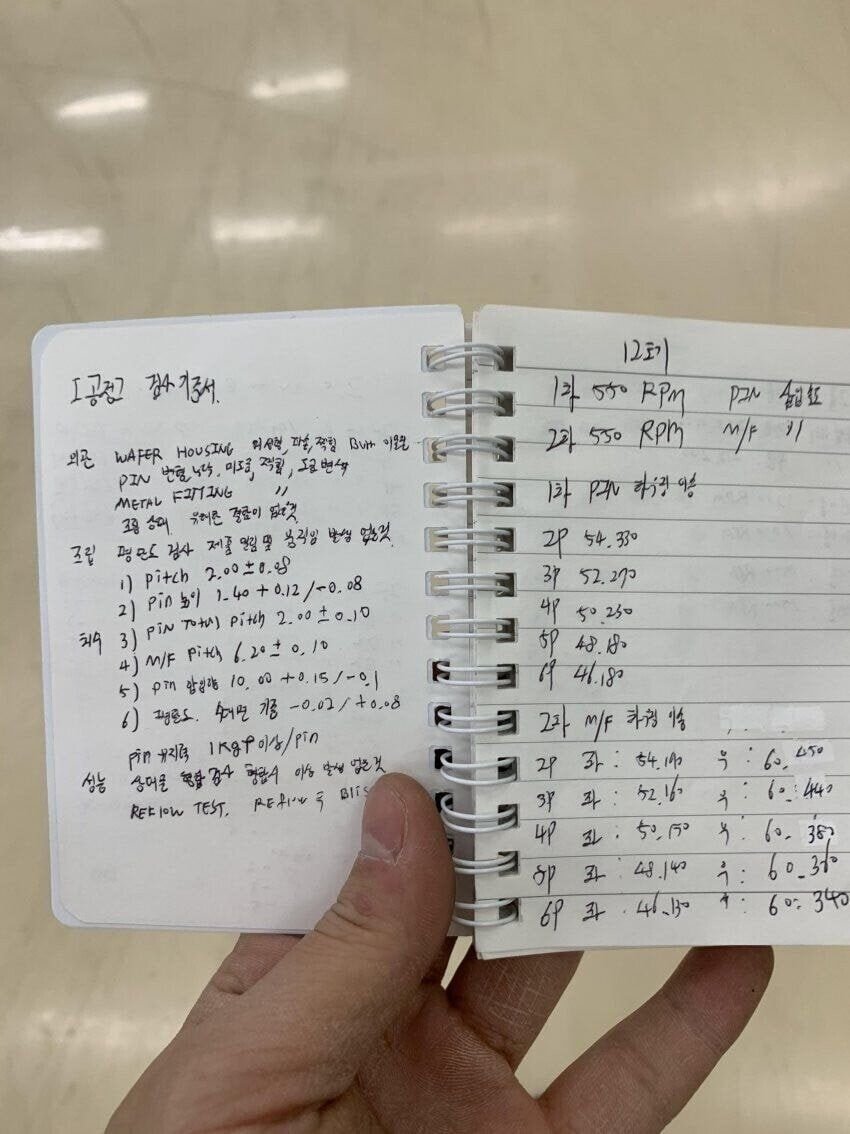 [공정] 검사기준서.
외관 WAFER HOUSING 미성형, 파손, 찍힘 Burr 이물질
PIN 변형, 누락, 미도금, 찍힘, 도금변색
METAL FITTING 〃
조립 상태 유해한 결함이 없을것.
조립 평탄도 검사 제품 밀림 및 움직임 발생 없을것.
1) Pitch 2.00 ± 0.08
2) Pin 높이 1.40 + 0.12 / -0.08
치수 3) PIN Total Pitch 2.00 ± 0.10
4) M/F Pitch 6.20 ± 0.10
5) Pin 압입량 10.00 + 0.15 / -0.1
6) 평탄도. 수대면 기준 -0.02 / +0.08
Pin 유지력 1Kgf 이상/pin
성능 상대물 결합 검사 결합시 이상 발생 없을것
REFlOW TEST. REflow 후
12호기
1차 550 RPM PIN 삽입속도
2차 550 RPM M/F 〃
1차 PIN 하우징 이송
2P 54.330
3P 52.270
4P 50.230
5P 48.180
6P 46.180
2차 M/F 하우징 이송
2P 좌 : 54.190 우 : 60.450
3P 좌 : 52.160 우 : 60.440
4P 좌 : 50.150 우 : 60.380
5P 좌 : 48.140 우 : 60.360
6P 좌 : 46.130 우 : 60.340